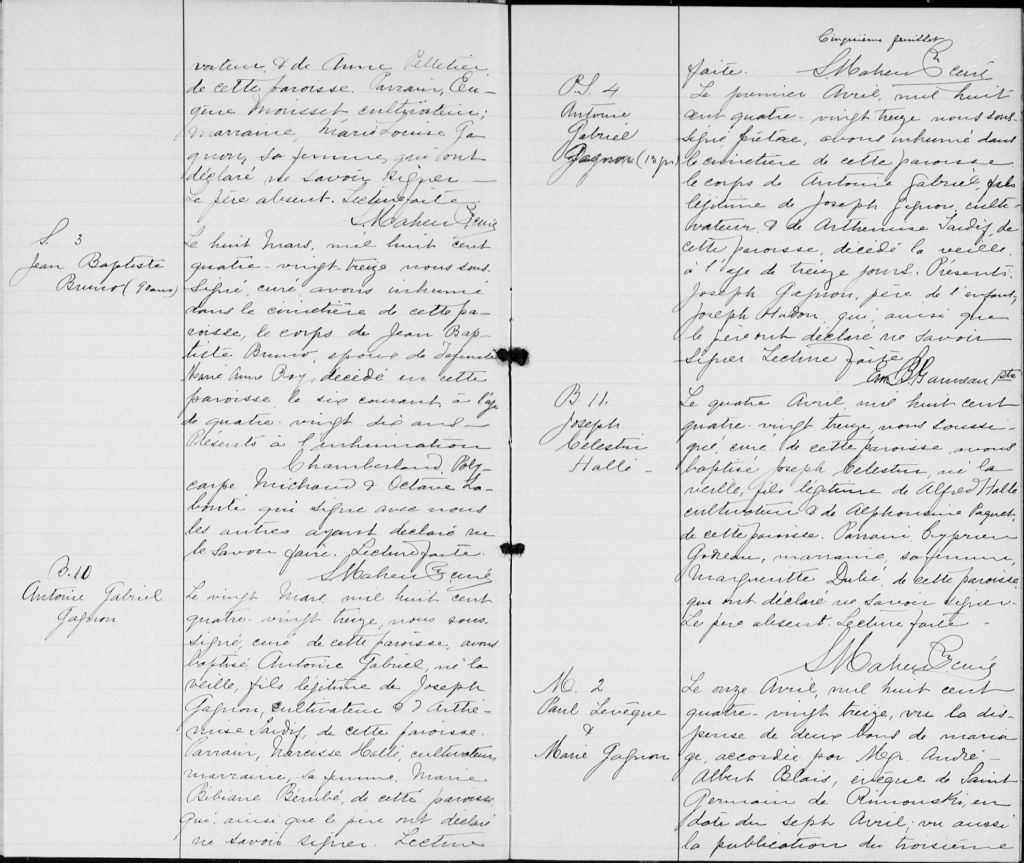 vateur, & de Anne Pelletier,
de cette paroisse. Parrain, Eu-
gène Moisset cultivateur;
marraine, Marie Louise Ga-
gnon, sa femme, qui ont
déclaré ne savoir signer —
Le père absent. Lecture faite.
SMaheu Ptre curé
S. 3
Jean Baptiste
Bruno (90 ans)
Le huit Mars, mil huit cent
quatre-vingt treize nous sous-
signé, curé avons inhumé
dans le cimetière de cette pa-
roisse, le corps de Jean Bap-
tiste Bruno, époux de Defunte
Anne Roy, décédé en cette
paroisse le six courant, à l'âge
de quatre-vingt dix ans —
Présents à l'inhumation
Chamberland, Poly-
carpe Michaud & Octave La-
bonté qui signe avec nous
les autres ayant déclaré ne
le savoir faire. Lecture faite.
SMaheu Ptre curé
B. 10
Antoine Gabriel
Gagnon
Le vingt Mars, mil huit cent
quatre-vingt treize, nous sous-
signé, curé de cette paroisse, avons
baptisé, Antoine Gabriel, né la
veille, fils légitime de Joseph
Gagnon, cultivateur & d'Arthé-
mise Tardif, de cette paroisse.
Parrain, Narcisse Hallé, cultivateur,
marraine, sa femme, Marie
Bibiane Bérubé, de cette paroisse,
qui ainsi que le père ont déclaré
ne savoir signer. Lecture
Cinquième feuillet
faite. SMaheu Ptre curé
P.S. 4
Antoine
Gabriel
Gagnon (13 jrs)
Le premier Avril, mil huit
cent quatre-vingt treize nous sous-
signé, prêtre, avons inhumé dans
le cimetière de cette paroisse
le corps de Antoine Gabriel, fils
légitime de Joseph Gagnon, culti-
vateur, & de Arthémise Tardif, de
cette paroisse, décédé la veille
à l'age de treize jours. Présents,
Joseph Gagnon, père de l'enfant,
Joseph Hudon, qui ainsi que
le père ont déclaré ne savoir
signer. Lecture faite
Garneau Ptre
B. 11.
Joseph
Célestin
Hallé —
Le quatre Avril, mil huit cent
quatre-vingt treize, nous soussi-
gné, curé de cette paroisse, avons
baptisé Joseph Célestin, né la
veille, fils légitime de Alfred Hallé
cultivateur & de Alphonsine Paquet,
de cette paroisse. Parrain Cyprien
Godreau, marraine, sa femme,
Margueritte Dubé, de cette paroisse
qui ont déclaré ne savoir signer.
Le père absent. Lecture faite —
SMaheu Ptre curé
M. 2
Paul Levêque
&
Marie Gagnon
Le onze Avril, mil huit cent
quatre-vingt treize, vu la dis-
pense de deux bans de maria-
ge, accordée par Mgr. André-
Albert Blais, evêque de Saint
Germain de Rimouski, en
date du sept Avril; vu aussi
la publication du troisième